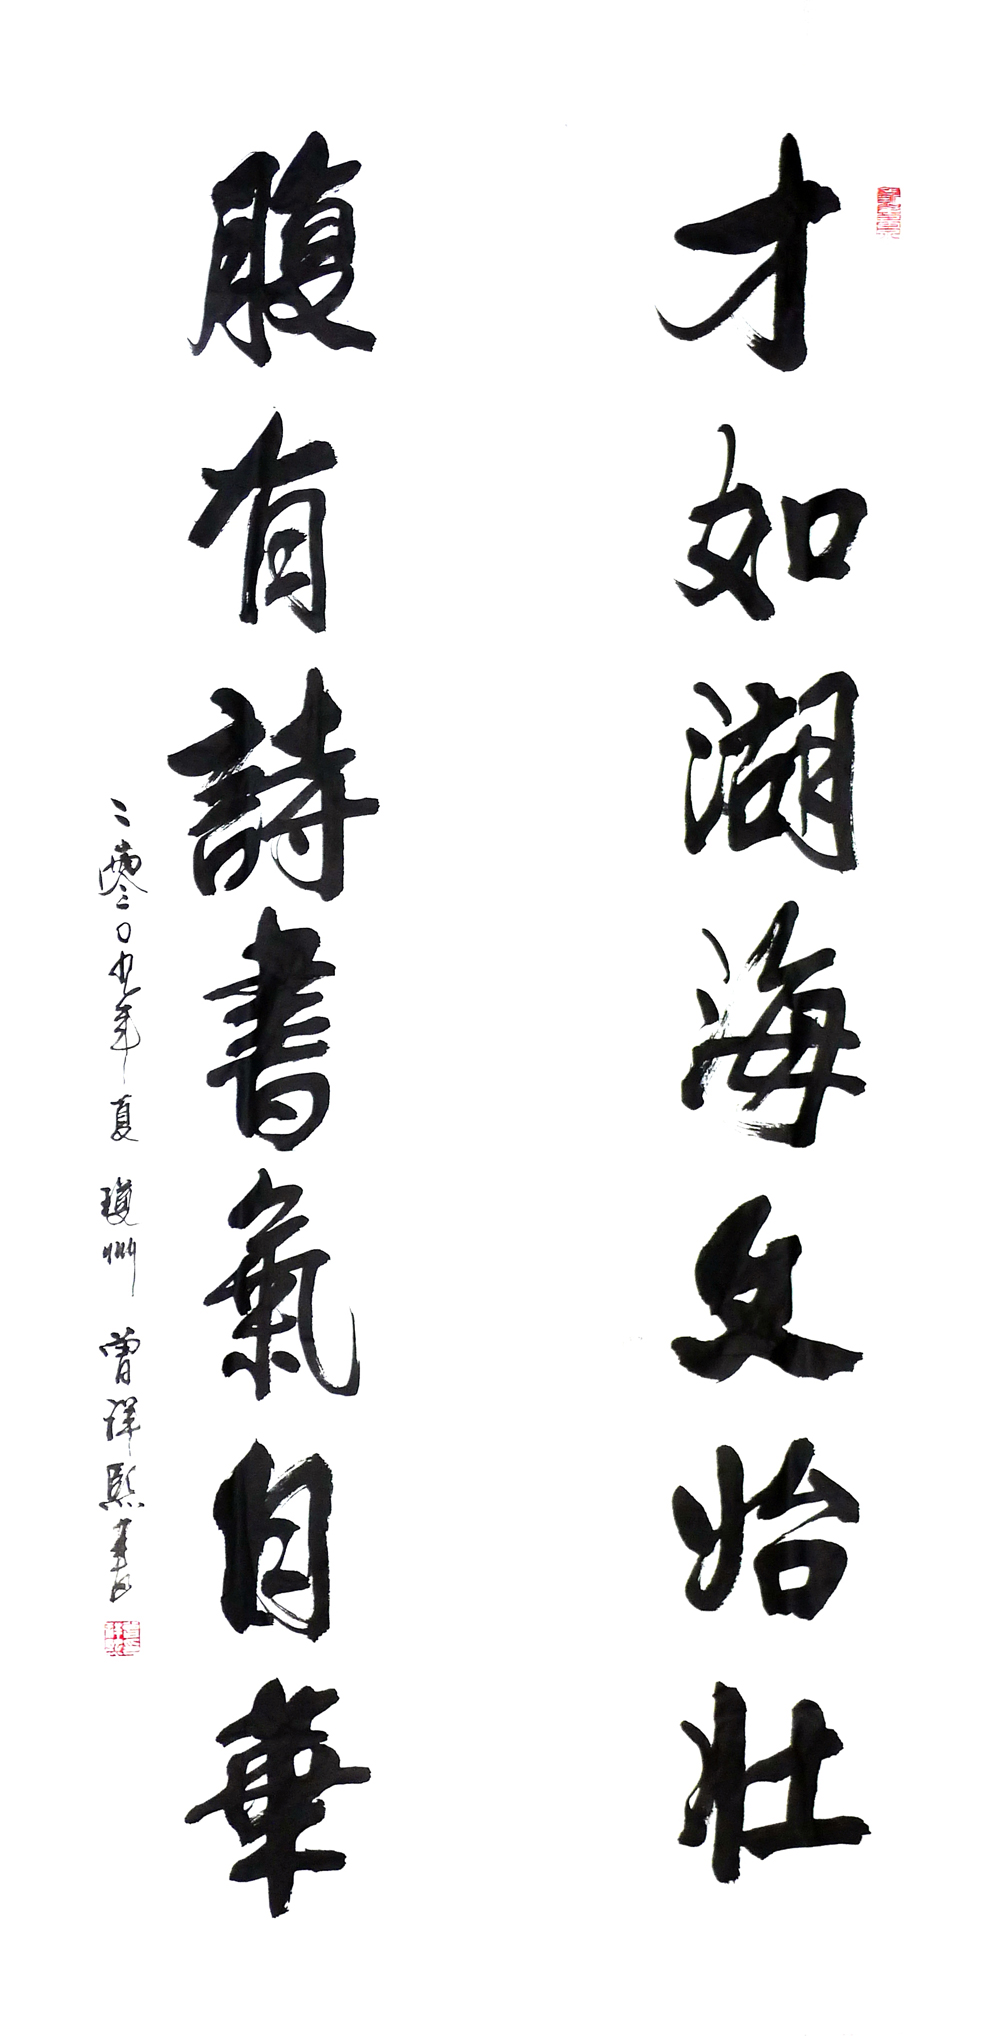 才如湖海文始壮
腹有詩書氣自華
二零〇九年夏 瓊州 曾祥熙書